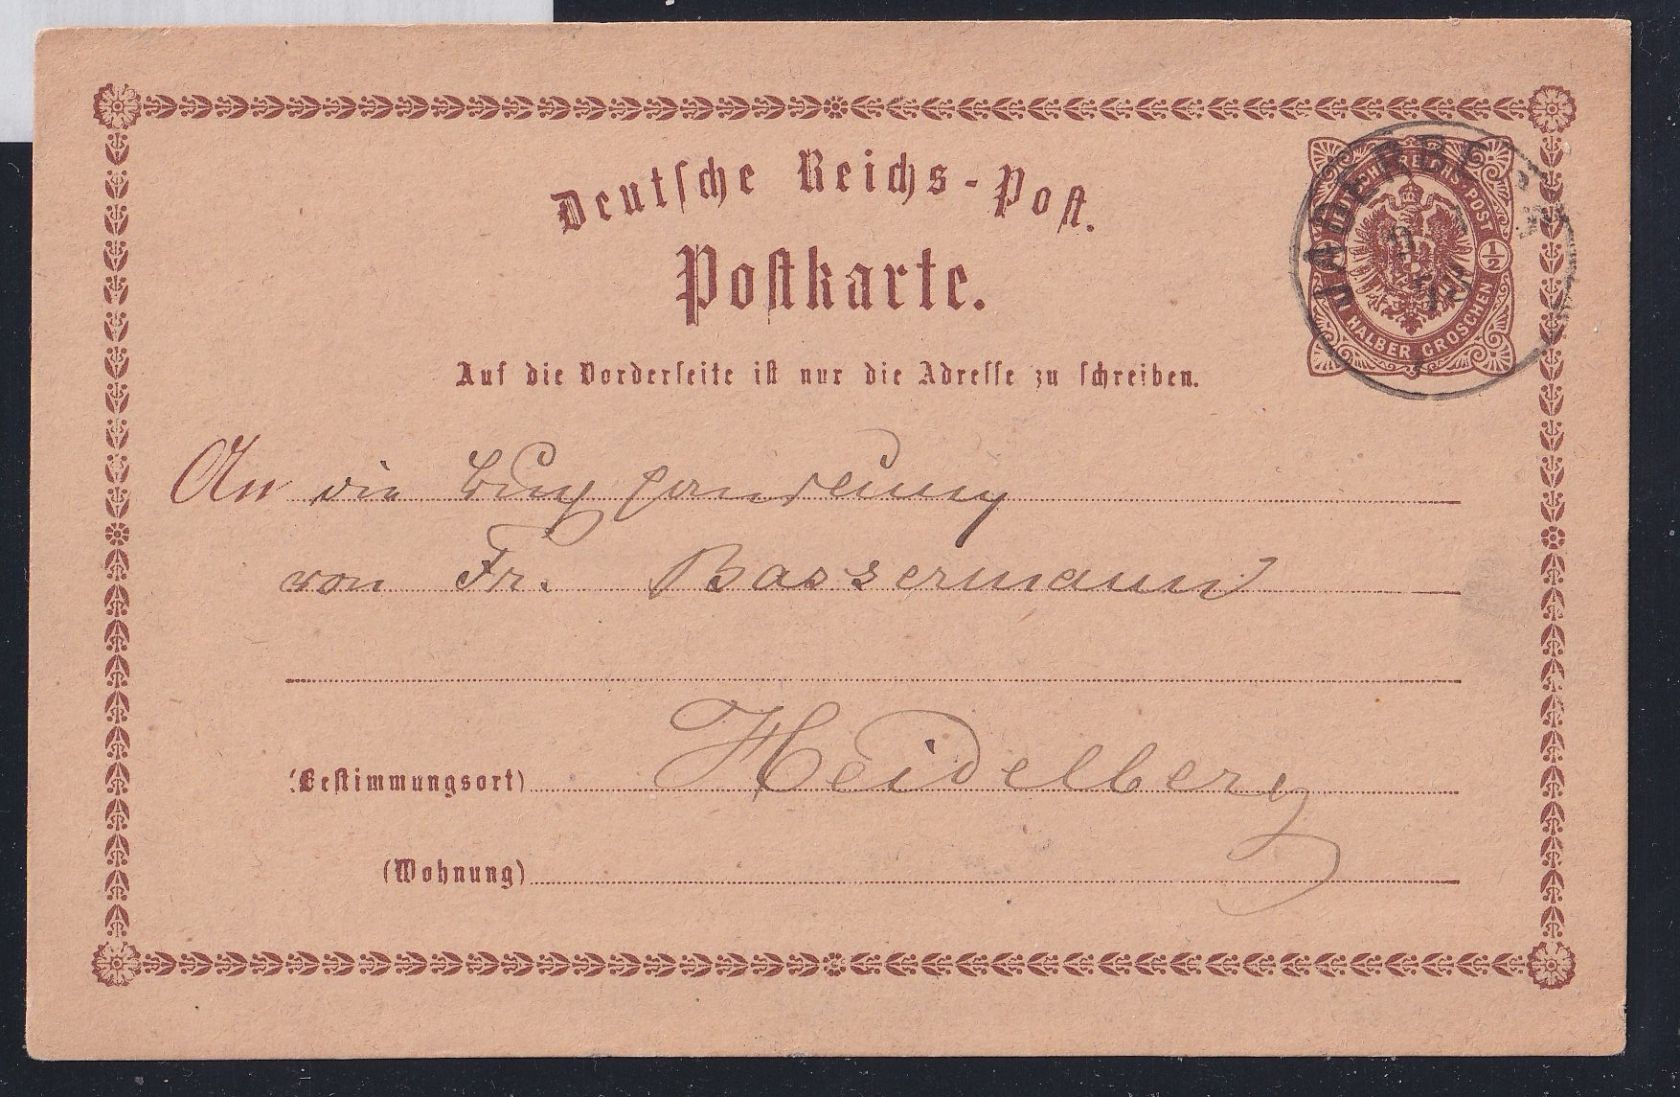 Deutsche Reichs-Post.
Postkarte.
DEUTSCHE REICHS POST
½
EIN HALBER GROSCHEN
JADERBERG
Auf die Vorderseite ist nur die Adresse zu schreiben.
An die Buchhandlung
von Fr. Bassermann
(Bestimmungsort) Heidelberg
(Wohnung)